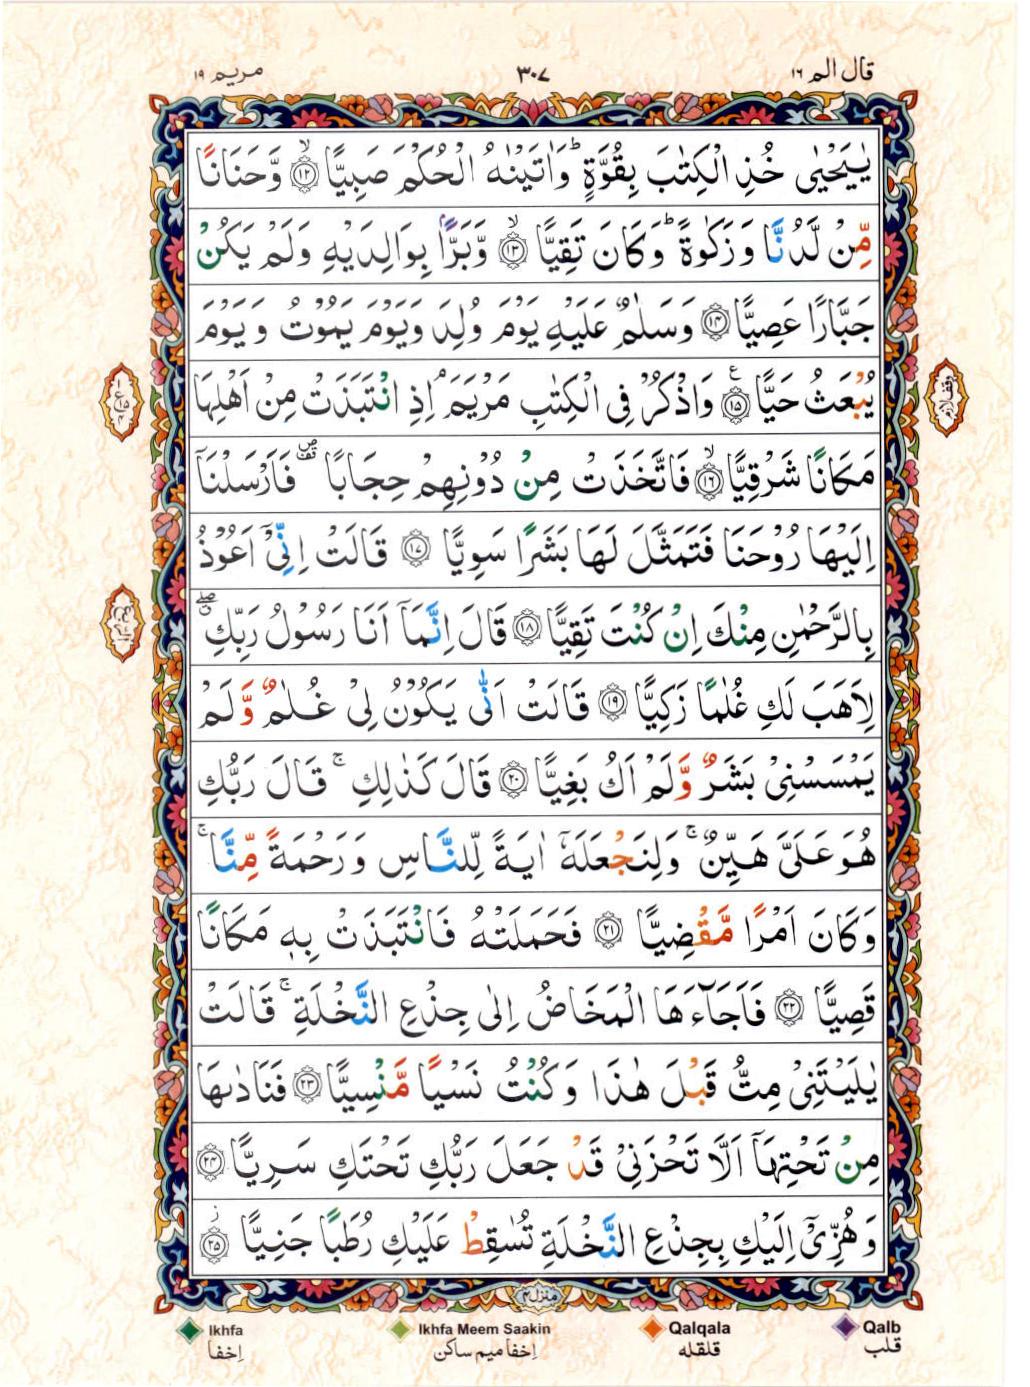 قال الم ١٦
٣٠٧
مريم ١٩
يٰيَحْيٰى خُذِ الْكِتٰبَ بِقُوَّةٍ ؕ وَاٰتَيْنٰهُ الْحُكْمَ صَبِيًّا ۙ﴿١٢﴾ وَّحَنَانًا
مِّنْ لَّدُنَّا وَزَكٰوةً ؕ وَكَانَ تَقِيًّا ۙ﴿١٣﴾ وَّبَرًّۢا بِوَالِدَيْهِ وَلَمْ يَكُنْ
جَبَّارًا عَصِيًّا ﴿١٤﴾ وَسَلٰمٌ عَلَيْهِ يَوْمَ وُلِدَ وَيَوْمَ يَمُوْتُ وَيَوْمَ
يُبْعَثُ حَيًّا ﴿١٥﴾ ع وَاذْكُرْ فِى الْكِتٰبِ مَرْيَمَ ۘ اِذِ انْتَبَذَتْ مِنْ اَهْلِهَا
وقف لازم
مَكَانًا شَرْقِيًّا ۙ﴿١٦﴾ فَاتَّخَذَتْ مِنْ دُوْنِهِمْ حِجَابًا فَاَرْسَلْنَاۤ
اِلَيْهَا رُوْحَنَا فَتَمَثَّلَ لَهَا بَشَرًا سَوِيًّا ﴿١٧﴾ قَالَتْ اِنِّىْۤ اَعُوْذُ
بِالرَّحْمٰنِ مِنْكَ اِنْ كُنْتَ تَقِيًّا ﴿١٨﴾ قَالَ اِنَّمَاۤ اَنَا رَسُوْلُ رَبِّكِ ۖ
الربع
لِاَهَبَ لَكِ غُلٰمًا زَكِيًّا ﴿١٩﴾ قَالَتْ اَنّٰى يَكُوْنُ لِىْ غُلٰمٌ وَّلَمْ
يَمْسَسْنِىْ بَشَرٌ وَّلَمْ اَكُ بَغِيًّا ﴿٢٠﴾ قَالَ كَذٰلِكِ ۚ قَالَ رَبُّكِ
هُوَ عَلَىَّ هَيِّنٌ ۚ وَلِنَجْعَلَهٗۤ اٰيَةً لِّلنَّاسِ وَرَحْمَةً مِّنَّا ۚ
وَكَانَ اَمْرًا مَّقْضِيًّا ﴿٢١﴾ فَحَمَلَتْهُ فَانْتَبَذَتْ بِهٖ مَكَانًا
قَصِيًّا ﴿٢٢﴾ فَاَجَآءَهَا الْمَخَاضُ اِلٰى جِذْعِ النَّخْلَةِ ۚ قَالَتْ
يٰلَيْتَنِىْ مِتُّ قَبْلَ هٰذَا وَكُنْتُ نَسْيًا مَّنْسِيًّا ﴿٢٣﴾ فَنَادٰىهَا
مِنْ تَحْتِهَاۤ اَلَّا تَحْزَنِىْ قَدْ جَعَلَ رَبُّكِ تَحْتَكِ سَرِيًّا ﴿٢٤﴾
وَهُزِّىْۤ اِلَيْكِ بِجِذْعِ النَّخْلَةِ تُسٰقِطْ عَلَيْكِ رُطَبًا جَنِيًّا ؗ﴿٢٥﴾
منزل ٤
Ikhfa
Ikhfa Meem Saakin
Qalqala
Qalb
اِخفا
اِخفا میم ساکن
قلقله
قلب